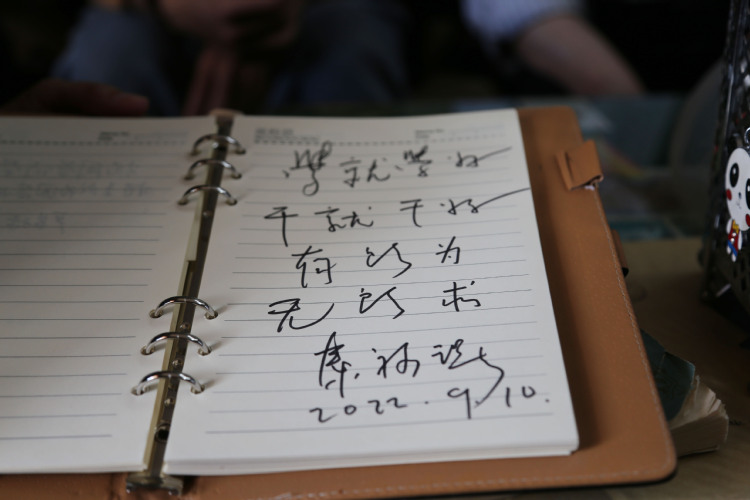 学就学好
干就干好
有所为
无所求
2022.9.10.